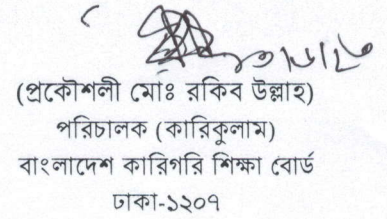 (প্রকৌশলী মোঃ রকিব উল্লাহ)
পরিচালক (কারিকুলাম)
বাংলাদেশ কারিগরি শিক্ষা বোর্ড
ঢাকা-১২০৭